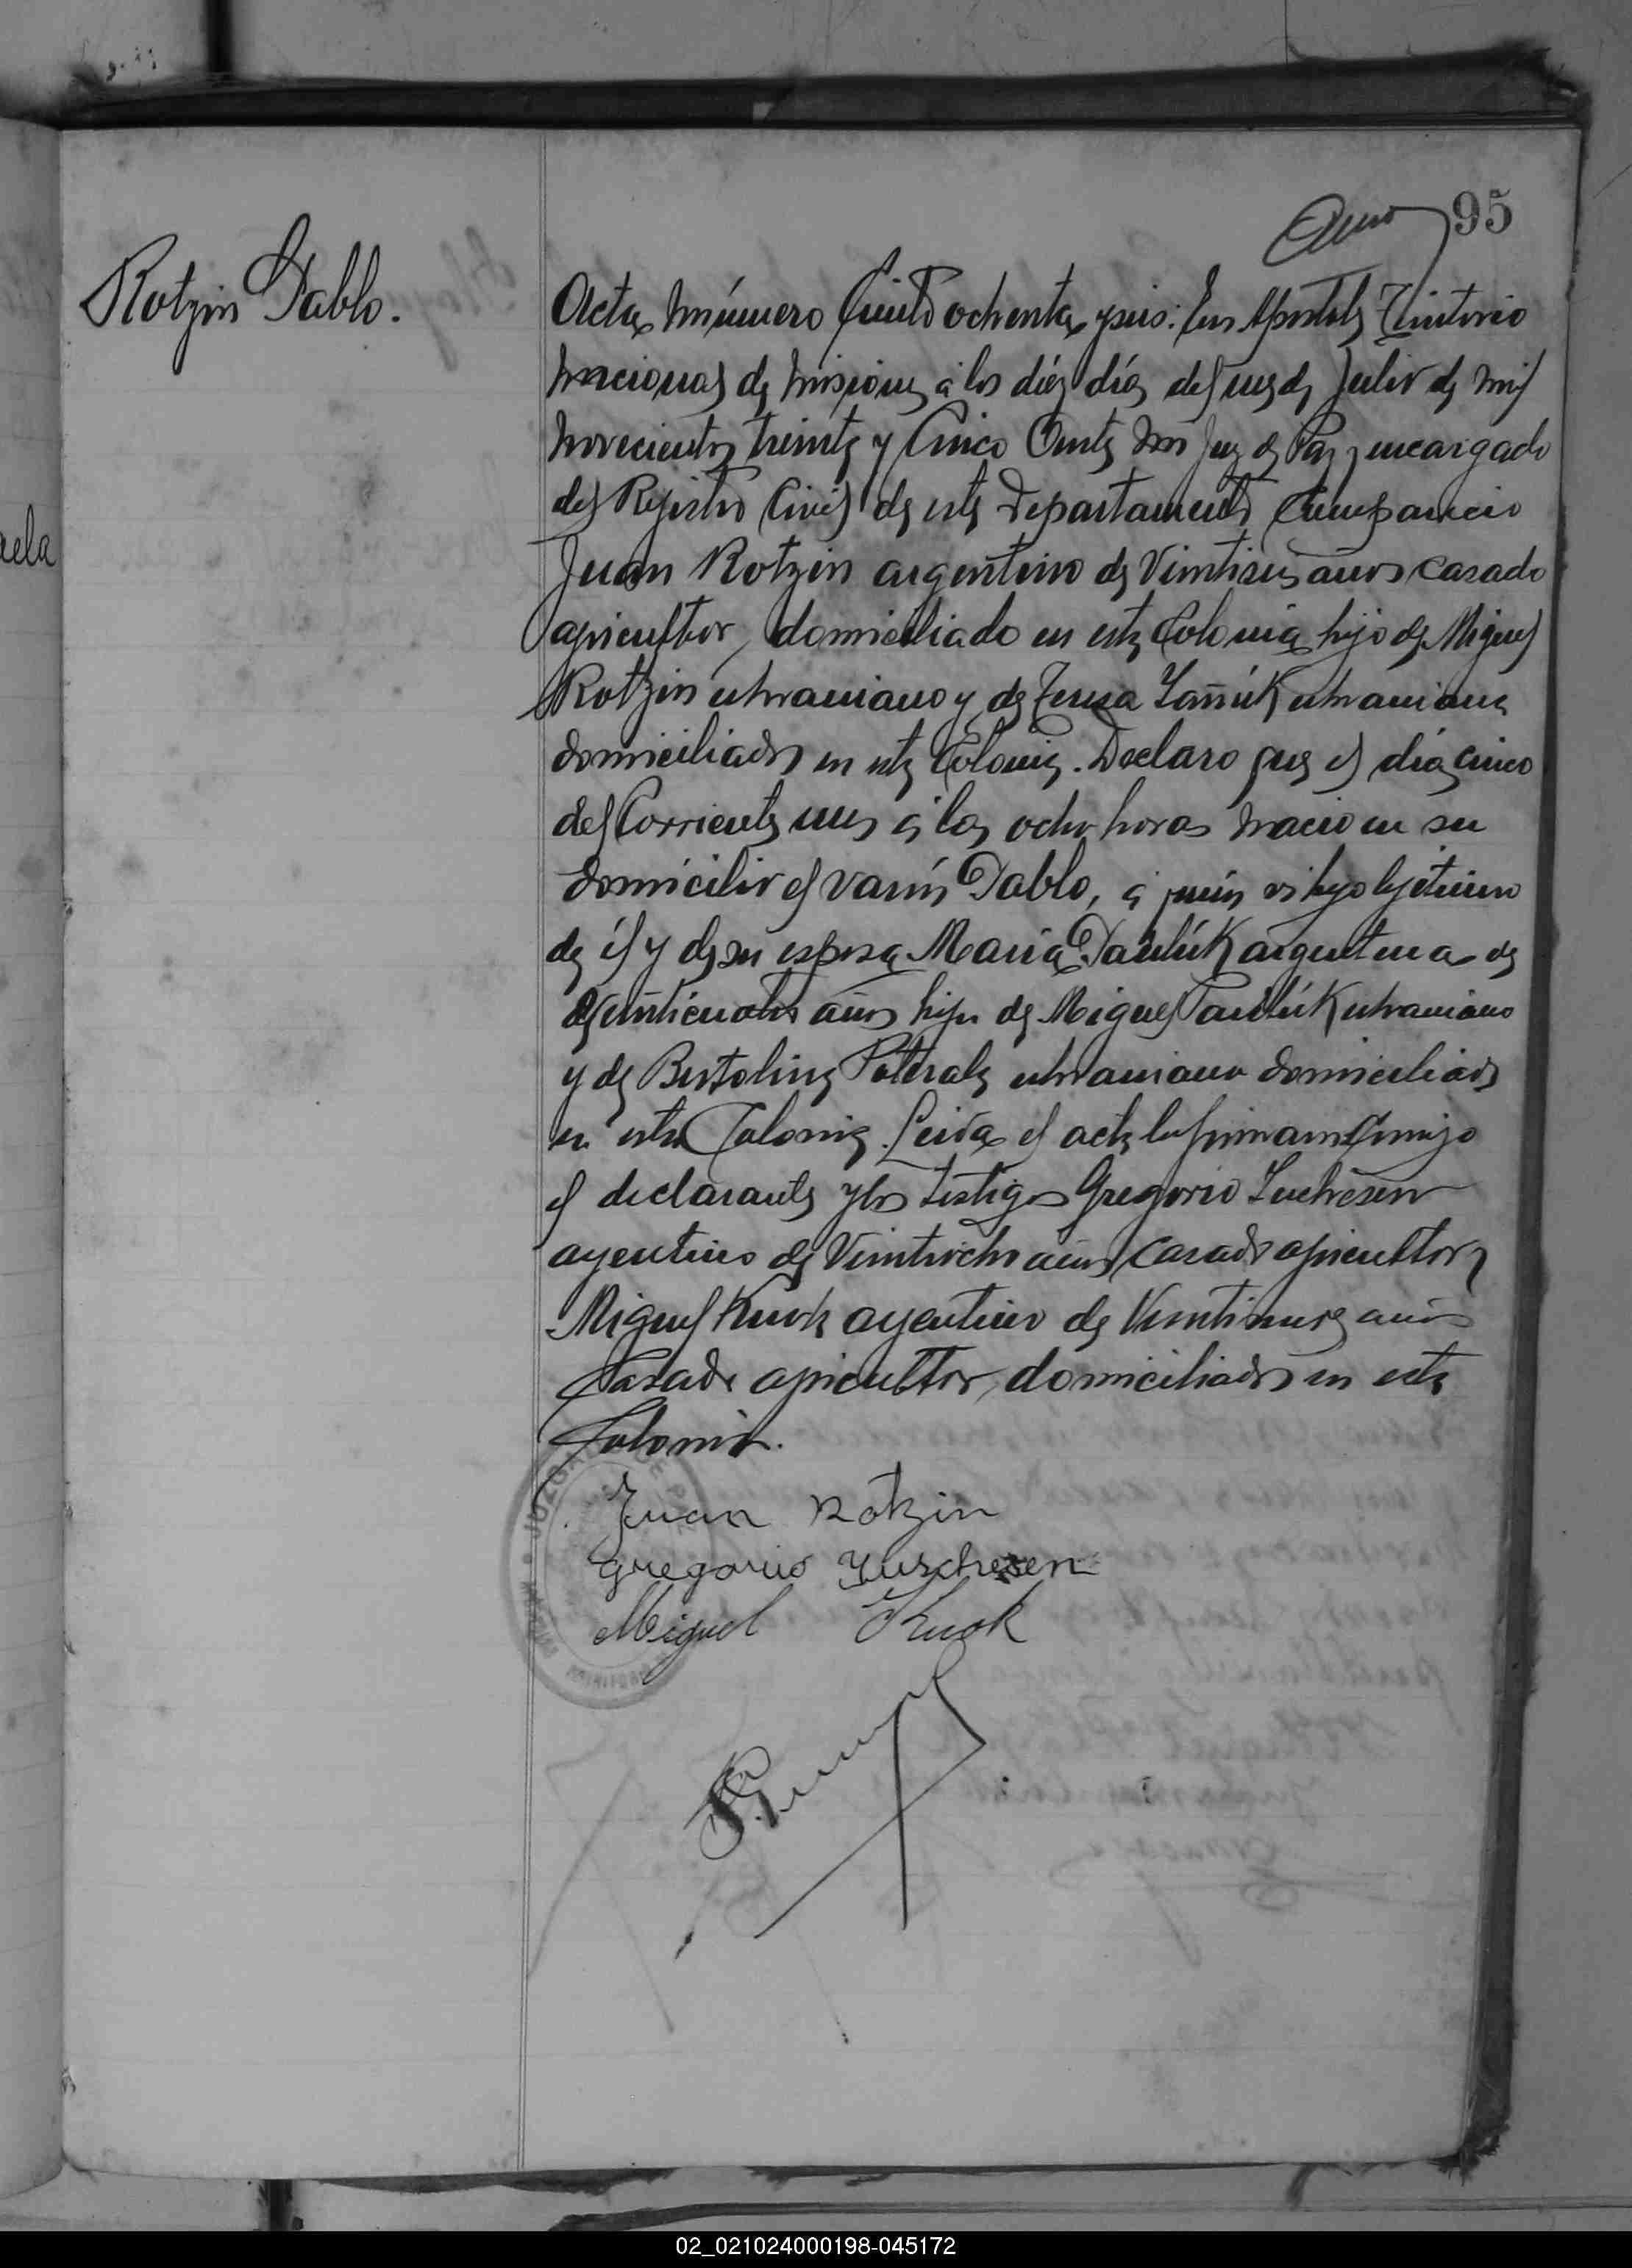 95
Rotzin Pablo.
Acta número Ciento ochenta y seis: En Apostoles Territorio
nacional de Misiones a los diez días del mes de Julio de mil
novecientos treinta y Cinco Ante mi Juez de Paz encargado
del Rejistro Civil de este Departamento Compareció
Juan Rotzin argentino de Veintiseis años casado
agricultor, domiciliado en esta Colonia hijo de Miguel
Rotzin ukraniano y de Teresa ukraniana
domiciliados en esta Colonia. Declaro que el día cinco
del Corriente mes a las ocho horas nacio en su
domicilio el varón Pablo, a quien es hijo lejitimo
de él y de su esposa Maria Paulúk argentina de
veinticuatro años hija de Miguel Paulúk ukraniano
y de ukraniano domiciliados
en esta Colonia. Leida el acta la firmaron Conmigo
el declarante y los testigos Gregorio
argentino de Veintiocho años Casado agricultor y
Miguel Kuok argentino de Veintinueve años
Casado agricultor, domiciliados en esta
Colonia.
Juan Rotzin
Gregorio Yuschesen
Miguel Kuok
02_021024000198-045172